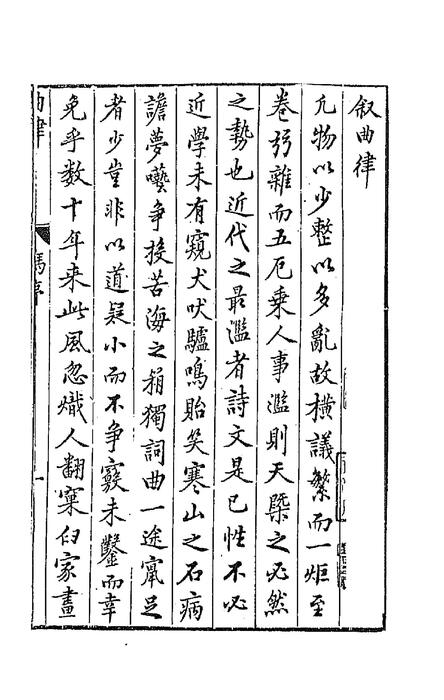 叙曲律
凡物以少整以多亂故横議繁而一炬至
卷雜而五厄乗人事濫則天槩之必然
之勢也近代之最濫者詩文是已性不必
近學未有窺犬吠驢鳴貽笑寒山之石病
譫夢囈争投苦海之箱獨詞曲一途竄足
者少豈非以道疑小而不争竅未鑿而幸
免乎數十年来此風忽熾人翻窠臼家畫
曲律 馮序 一